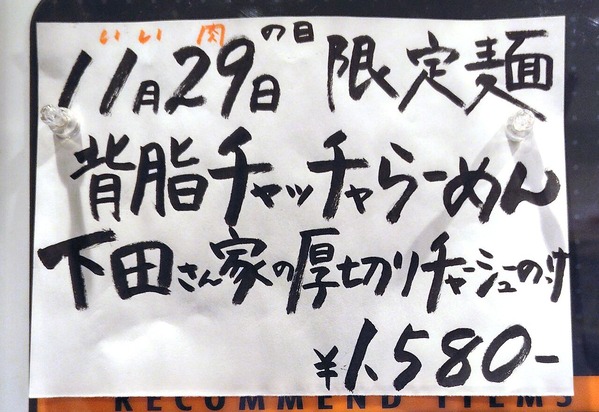 いい肉の日
11月29日 限定麺
背脂チャッチャらーめん
下田さん家の厚切りチャーシューのっけ
¥1.580-
RECOMMEND ITEMS